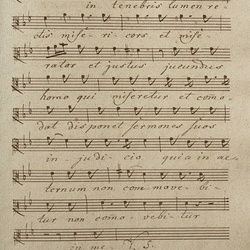 in tenebris lumen re-
ctis mise- ri- cors et mise-
rator et justus jucundus
homo qui miseretur et como-
dat disponet sermones suos
in- ju- di- cio quia in ae-
ternum non com- move- bi-
tur non como- vebitur
in me-